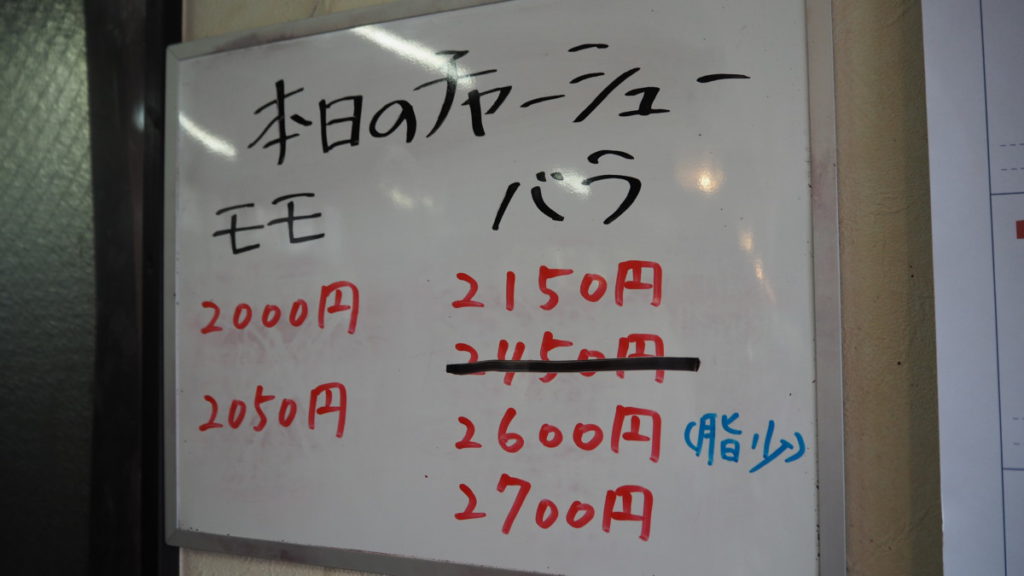 本日のチャーシュー
モモ バラ
2000円 2150円
2450円
2050円 2600円 (脂少)
2700円